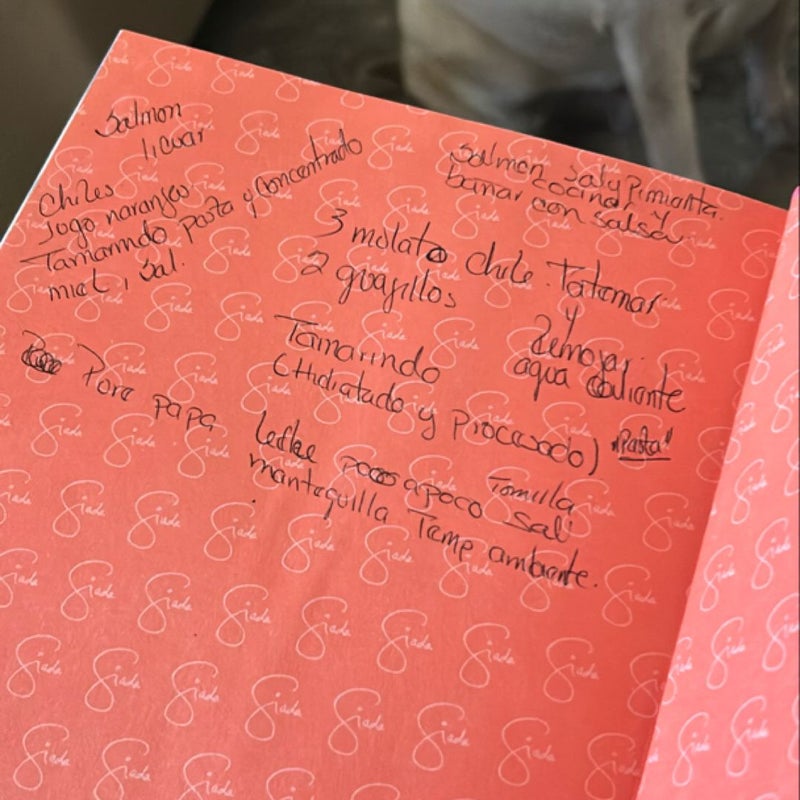 Salmon
licuar
Chiles
Jogo naranjas
Tamarindo pasta y concentrado
miel, sal.
Salmon sal y Pimienta.
cocinar y
banar con salsa
3 molato chile. Tatemar
2 guajillos
y
Remojar
agua caliente
Tamarindo
(Hidratado y Procesado) "Pasta"
Pure papa
leche poco a poco Tomilla
mantequilla Temp ambiente.
sal
Giada